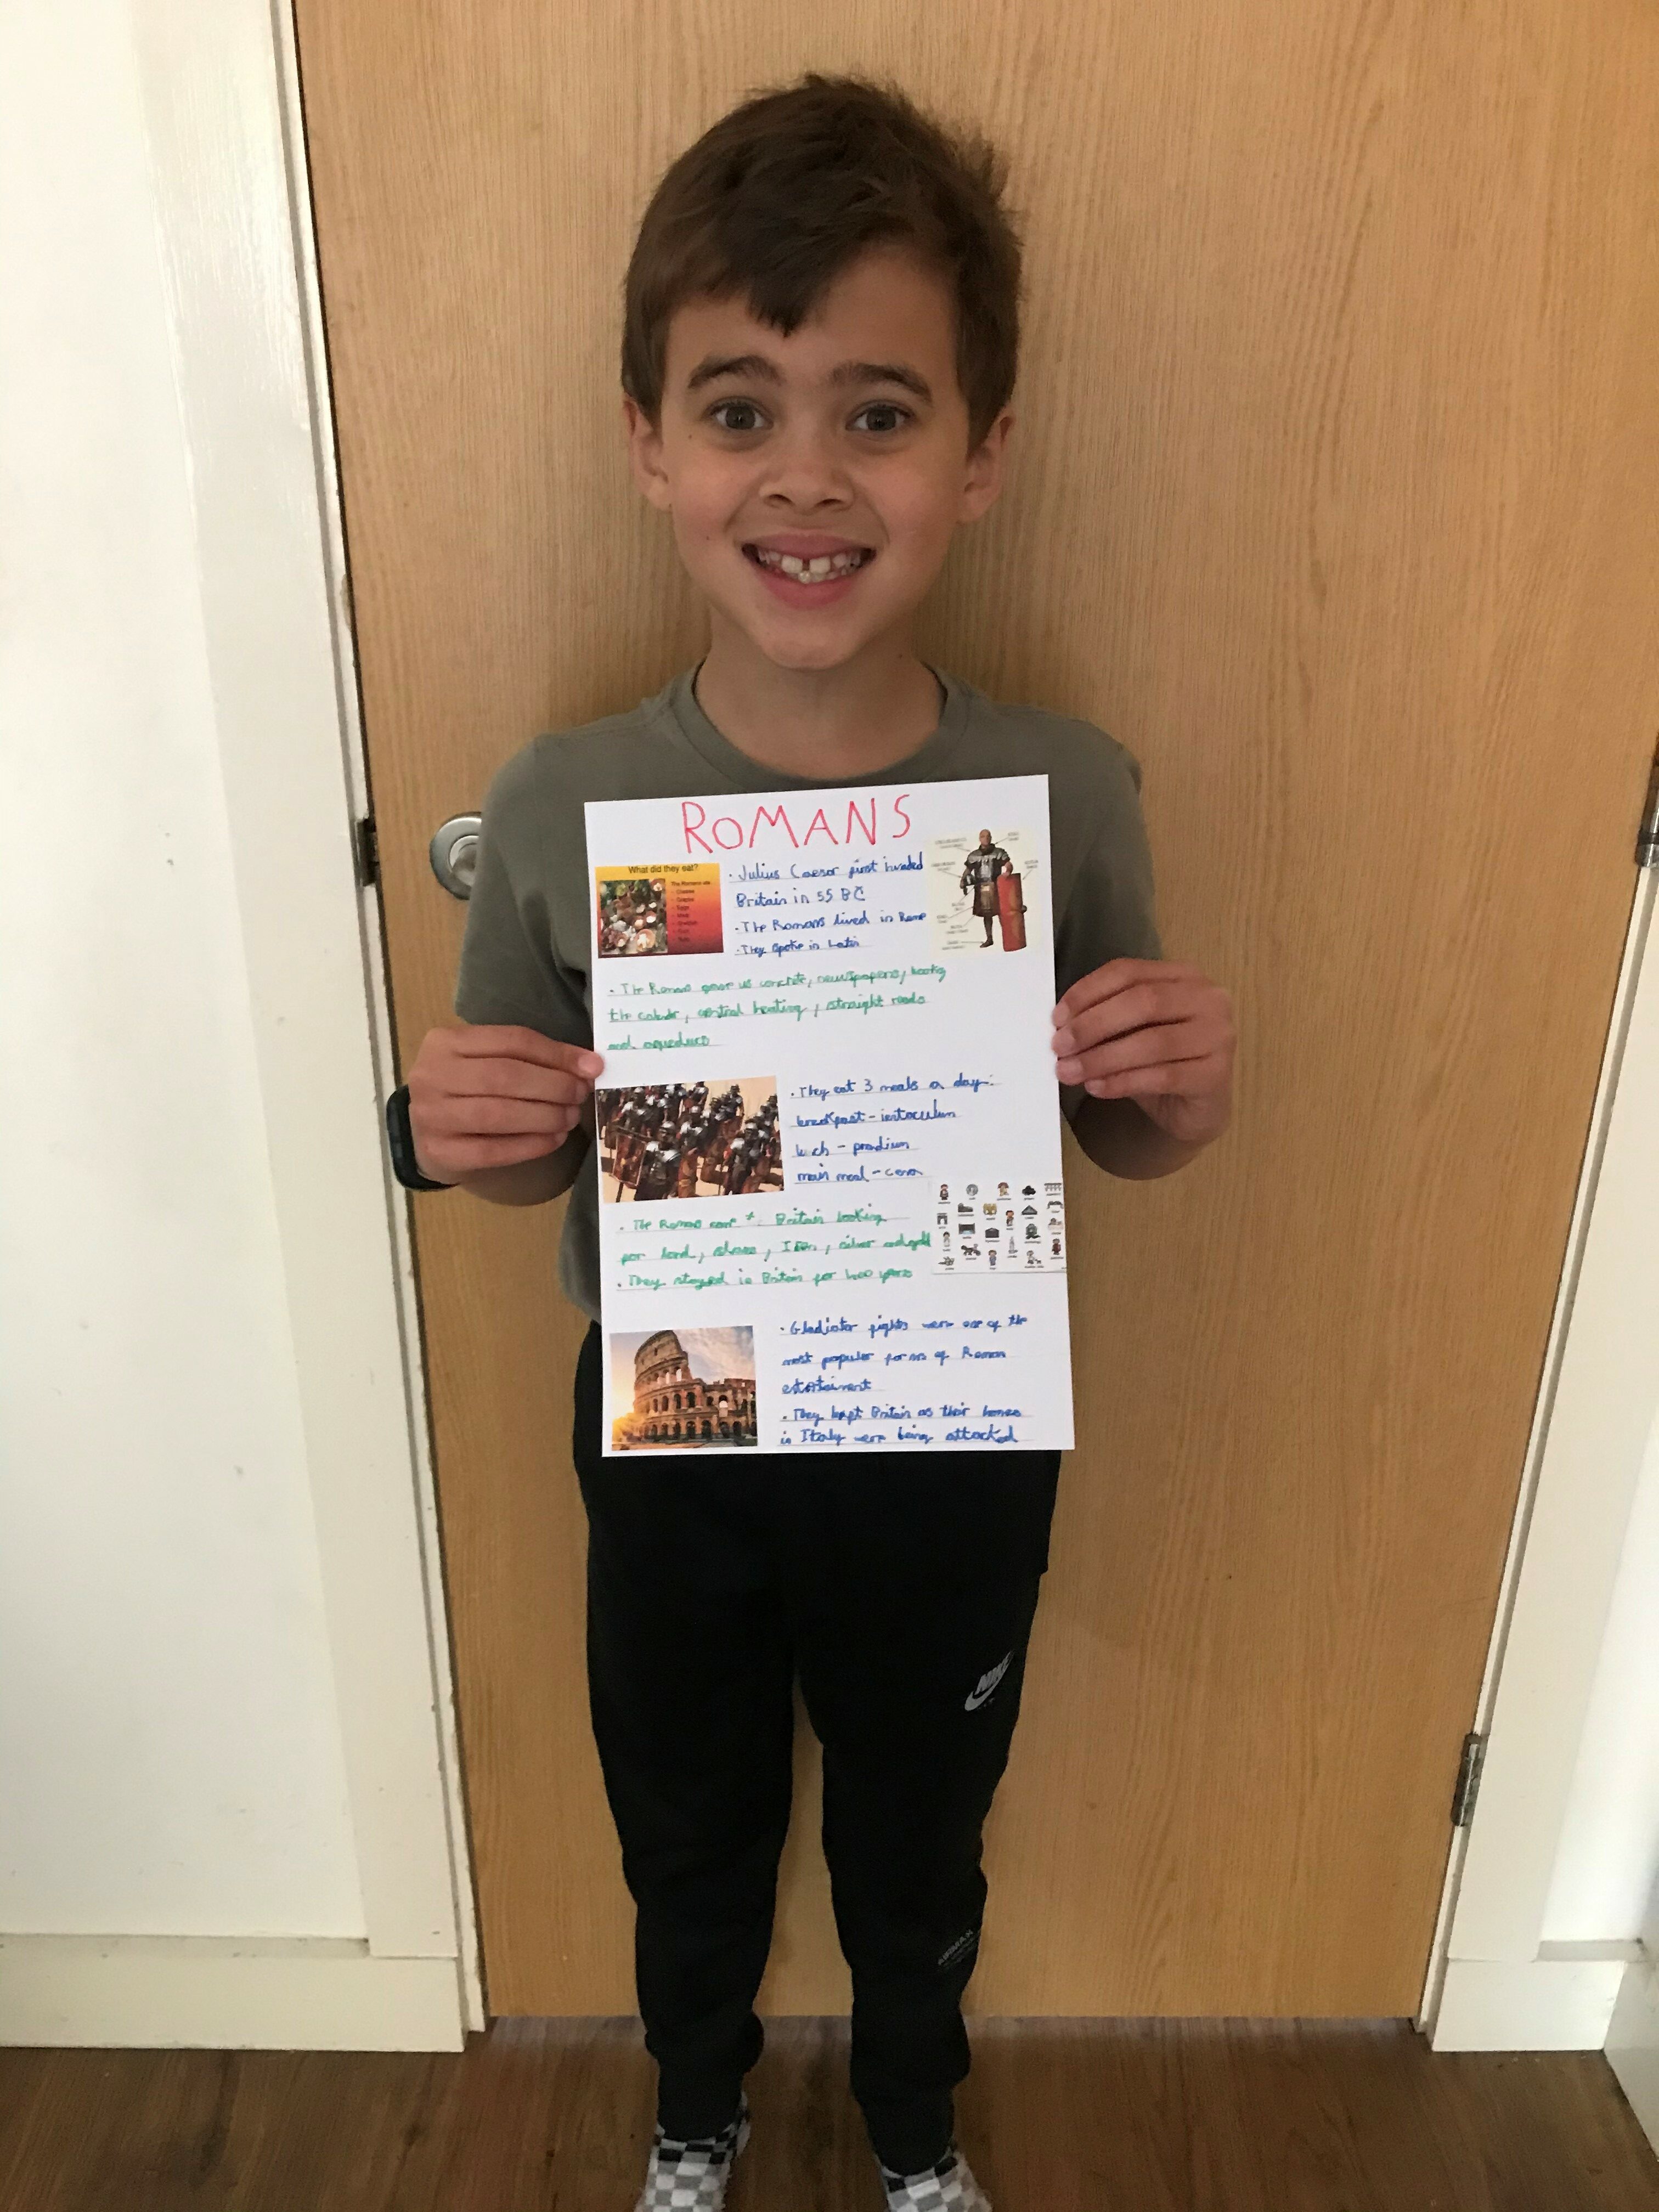 ROMANS
What did they eat?
The Romans ate
Cheese
Grapes
Eggs
· Julius Caesar first invaded
Britain in 55 BC
· The Romans lived in Rome
· They spoke in Latin
· The Romans gave us concrete, newspapers, books
the calendar, central heating, straight roads
and aqueducts
· They eat 3 meals a day:
breakfast - ientaculum
lunch - prandium
main meal - cena
· The Romans came to Britain looking
for land, slaves, Iron, silver and gold
· They stayed in Britain for 400 years
· Gladiator fights were one of the
most popular forms of Roman
entertainment
· They left Britain as their homes
in Italy were being attacked
NIKE
AIRMAX